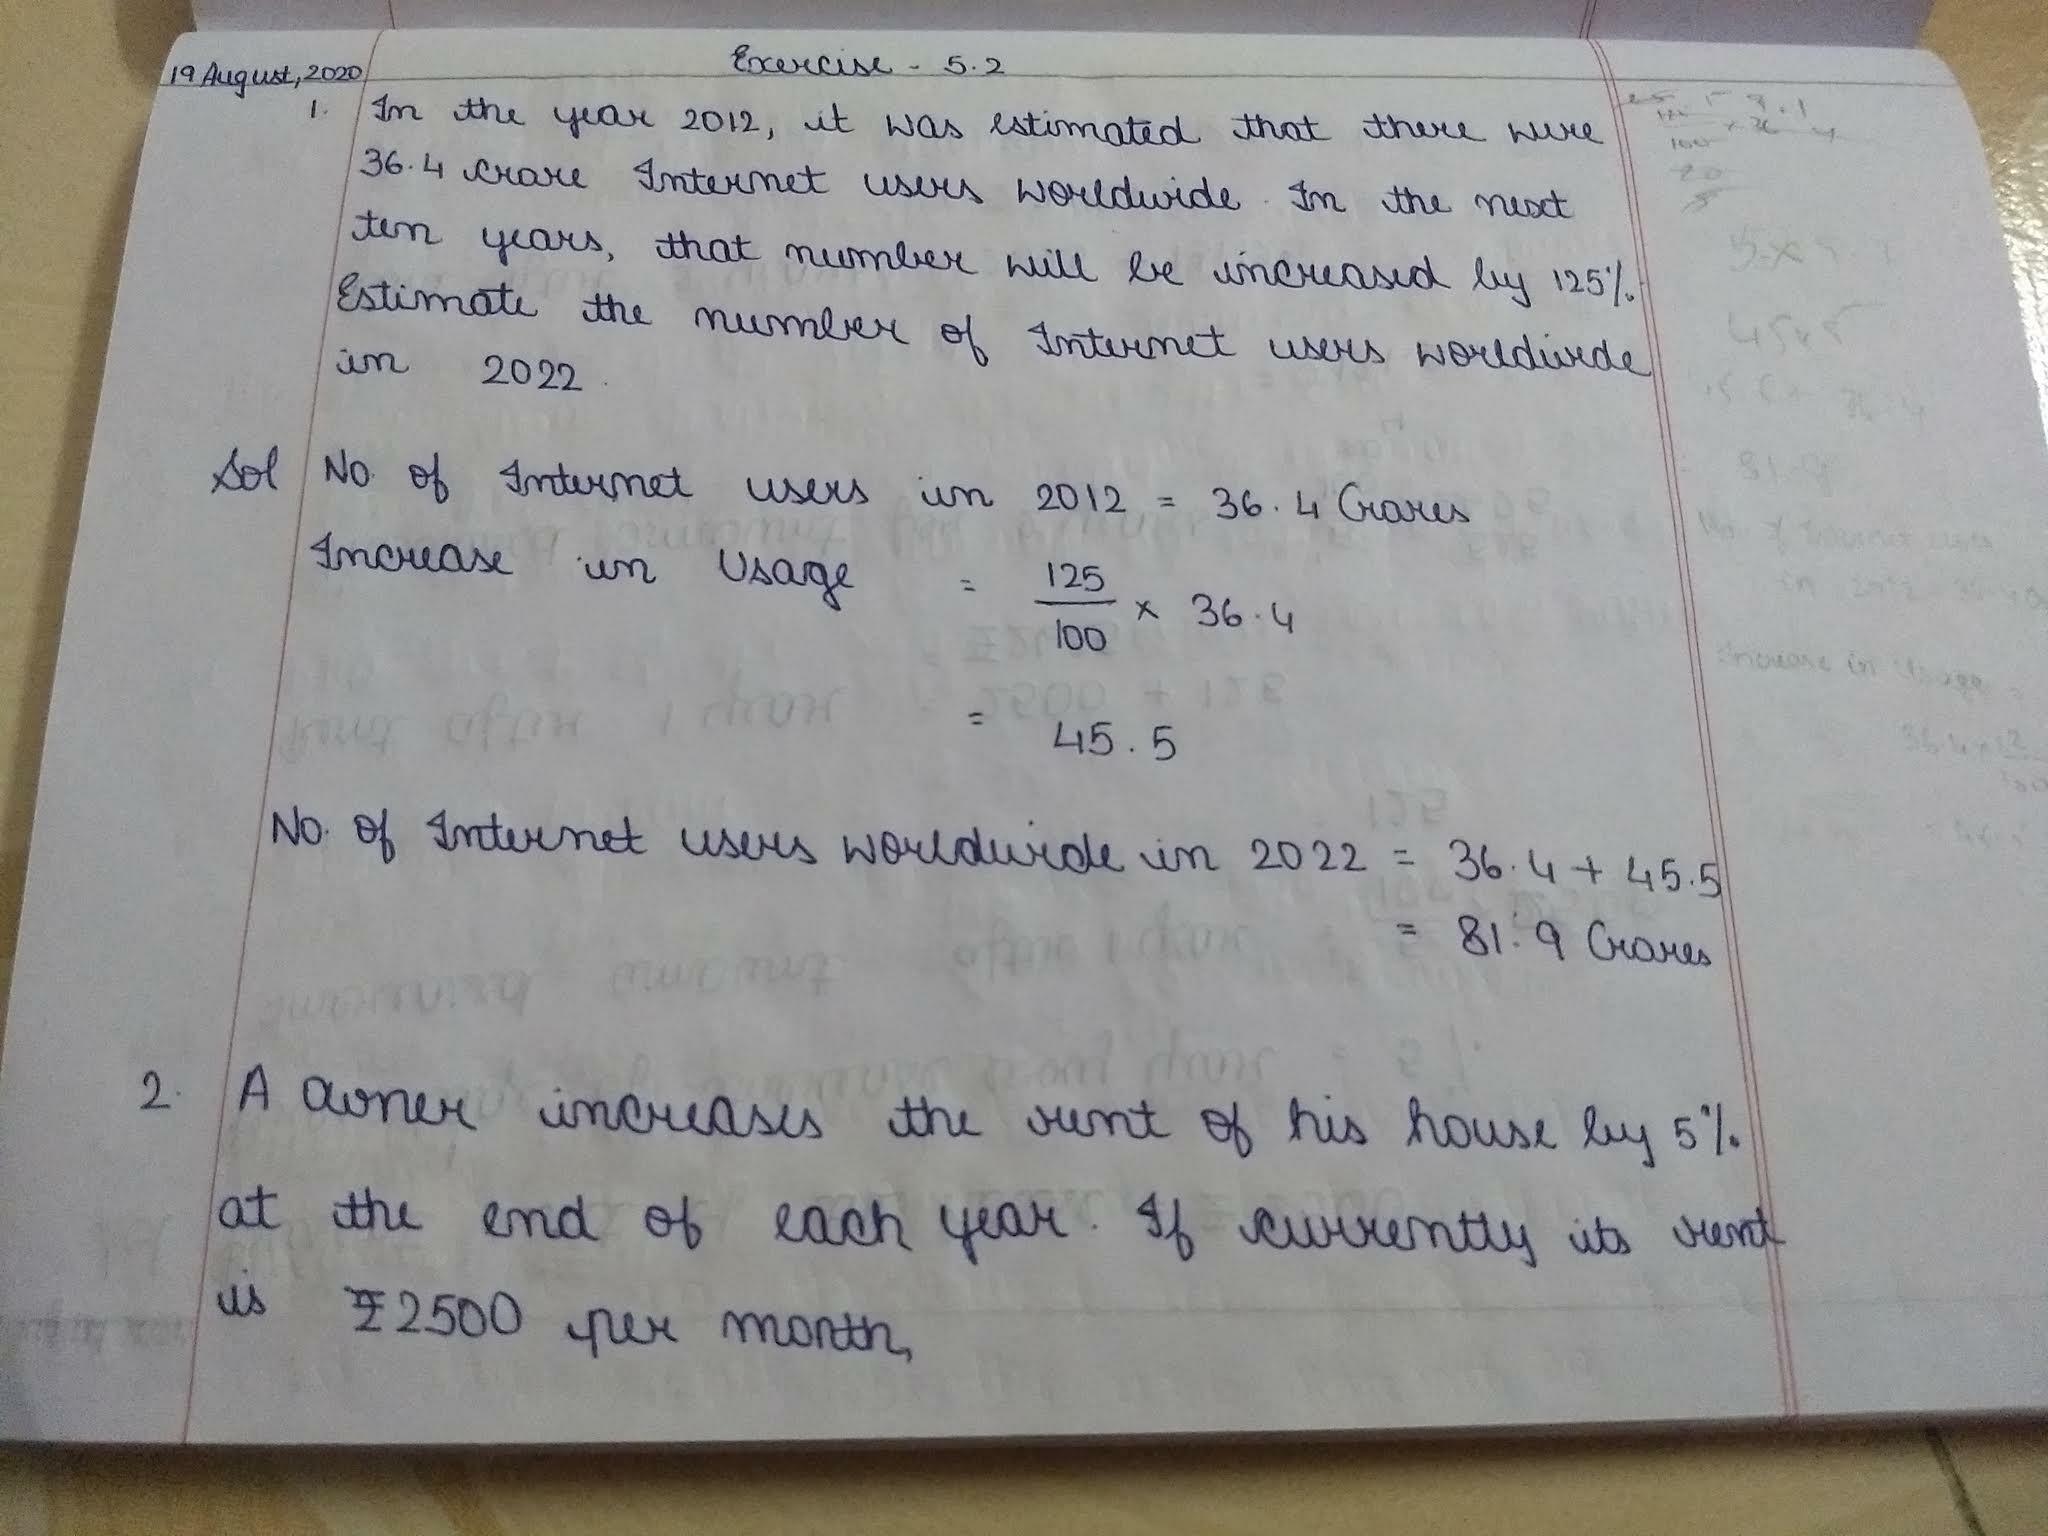 19 August, 2020
Exercise - 5.2
1. In the year 2012, it was estimated that there were
36.4 crore Internet users worldwide. In the next
ten years, that number will be increased by 125%.
Estimate the number of Internet users worldwide
in 2022.
Sol No. of Internet users in 2012 = 36.4 Crores
Increase in Usage = 125/100 × 36.4
= 45.5
No. of Internet users worldwide in 2022 = 36.4 + 45.5
= 81.9 Crores
2. A owner increases the rent of his house by 5%
at the end of each year. If currently its rent
is ₹2500 per month,